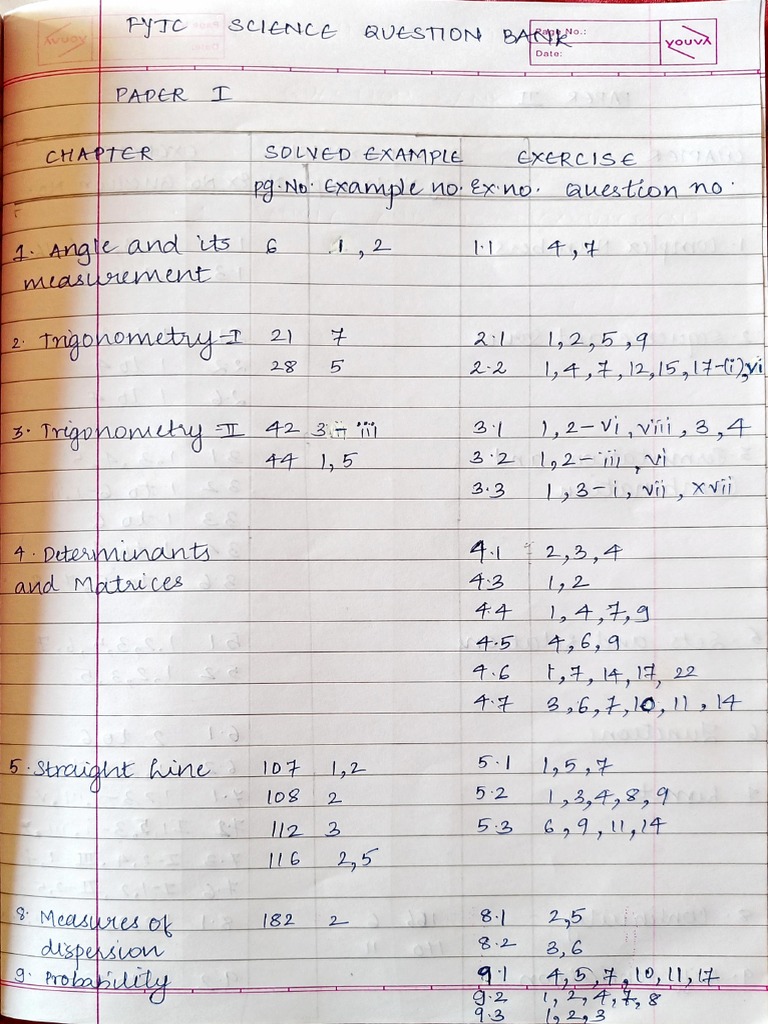 FYJC SCIENCE QUESTION BANK
Page No.:
Date:
YOUVA
PAPER I
CHAPTER SOLVED EXAMPLE EXERCISE
pg. No. Example no. Ex. no. Question no.
1. Angle and its 6 1, 2 1.1 4, 7
measurement
2. Trigonometry-I 21 7 2.1 1, 2, 5, 9
28 5 2.2 1, 4, 7, 12, 15, 17-(i), vi
3. Trigonometry-II 42 3-iii 3.1 1, 2-vi, viii, 3, 4
44 1, 5 3.2 1, 2-iii, vi
3.3 1, 3-i, vii, xvii
4. Determinants 4.1 2, 3, 4
and Matrices 4.3 1, 2
4.4 1, 4, 7, 9
4.5 4, 6, 9
4.6 1, 7, 14, 17, 22
4.7 3, 6, 7, 10, 11, 14
5. Straight Line 107 1, 2 5.1 1, 5, 7
108 2 5.2 1, 3, 4, 8, 9
112 3 5.3 6, 9, 11, 14
116 2, 5
8. Measures of 182 2 8.1 2, 5
dispersion 8.2 3, 6
9. Probability 9.1 4, 5, 7, 10, 11, 17
9.2 1, 2, 4, 7, 8
9.3 1, 2, 3